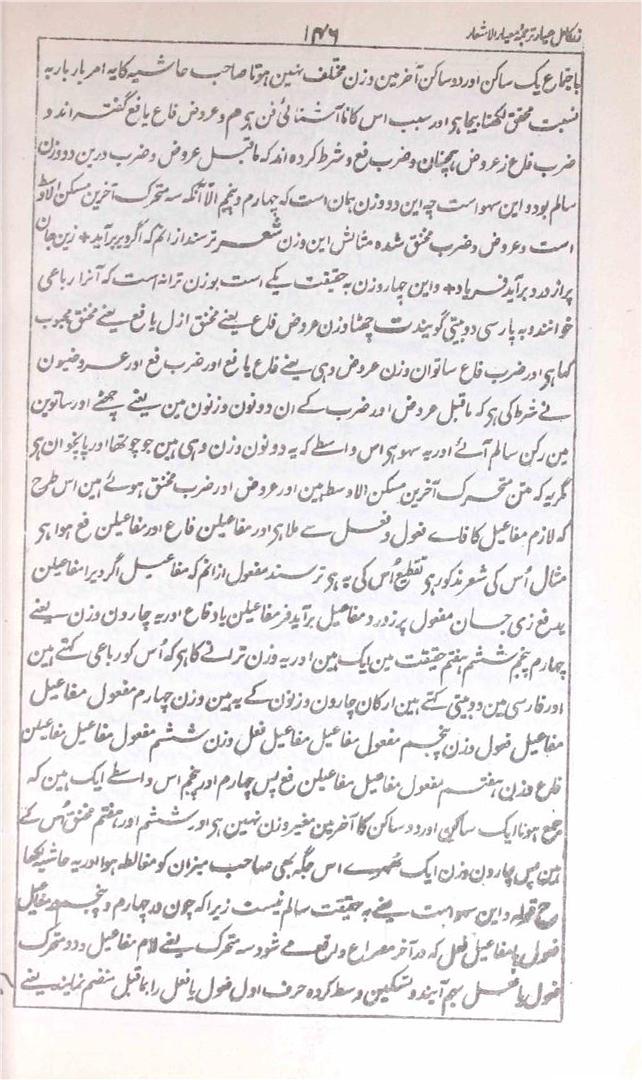 زر کامل عیار ترجمۂ معیار الاشعار
۱۴۶
باجتماع یک ساکن اور دو ساکن آخر مین وزن مختلف نہین ہوتا صاحب حاشیہ کا یہ امر بار بار بہ
نسبت محقق لکھنا بیجا ہو اور سبب اس کا نا آشنائی فن ہو م و عروض فاع یا فع گفتہ اند و
ضرب فاع ز عروض ہمچنان و ضرب فع و شرط کردہ اند کہ ماقبل عروض و ضرب درین دو وزن
سالم بود و این سہو است چہ این دو وزن ہمان است کہ چہارم و پنجم الا آنکہ سہ متحرک آخرین مسکن الاوسط
است و عروض و ضرب مخنق شدہ مثالش این وزن شعر ترسند از انم کہ اگر دیر برآید + زین جان
پر از درد برآید فریاد + و این چہار وزن بہ حقیقت یکے است بوزن ترانہ است کہ آنرا رباعی
خوانند و بہ پارسی دوبیتی گویند ت چھٹا وزن عروض فاع یعنے مخنق ازل یا فع یعنے مخنق مجبوب
کہا ہو اور ضرب فاع ساتوان وزن عروض وہی یعنے فاع یا فع اور ضرب فع اور عروضیون
نے شرط کی ہو کہ ماقبل عروض اور ضرب کے ان دونون وزنون مین یعنے چھٹے اور ساتوین
مین رکن سالم آئے اور یہ سہو ہو اس واسطے کہ یہ دونون وزن وہی ہین جو چوتھا اور پانچوان ہو
مگر یہ کہ متحرک آخرین مسکن الاوسط ہین اور عروض اور ضرب مخنق ہوئے ہین اس طرح
کہ لازم مفاعیل کا فاے فعول و فعل سے ملا ہو اور مفاعیلن فاع اور مفاعیلن فع ہوا ہو
مثال اُس کی شعر مذکور ہو تقطیع اُس کی یہ ہو ترسند مفعول از انم کہ مفاعیل اگر دیرا مفاعیلن
ید فع زی جان مفعول پر ز درد مفاعیل برآید فر مفاعیلن یاد فاع اور یہ چارون وزن یعنے
چہارم پنجم ششم ہفتم حقیقت مین ایک ہین اور یہ وزن ترانے کا ہو کہ اُس کو رباعی کہتے ہین
اور فارسی مین دوبیتی کہتے ہین ارکان چارون وزنون کے یہ ہین وزن چہارم مفعول مفاعیل
مفاعیل فعول وزن پنجم مفعول مفاعیل مفاعیل فعل وزن ششم مفعول مفاعیل مفاعیلن
فاع وزن ہفتم مفعول مفاعیل مفاعیلن فع پس چہارم اور پنجم اس واسطے ایک ہین کہ
جمع ہونا ایک ساکن اور دو ساکن کا آخر مین مغیر وزن نہین ہو اور ششم اور ہفتم مخنق اُس کے
ہین پس چارون وزن ایک ٹھہرے اس جگہ بھی صاحب میزان کو مغالطہ ہوا اور یہ حاشیہ لکھا
ح قولہ و این سہو است یعنے بہ حقیقت سالم نیست زیرا کہ چون در چہارم و پنجم مفاعیل
فعول یا مفاعیل فعل کہ در آخر مصراع واقع مے شود سہ متحرک یعنے لام مفاعیل و دو متحرک
فعول یا فعل بہم آیند و تسکین وسط کردہ حرف اول فعول یا فعل را بماقبل منضم نمایند یعنے